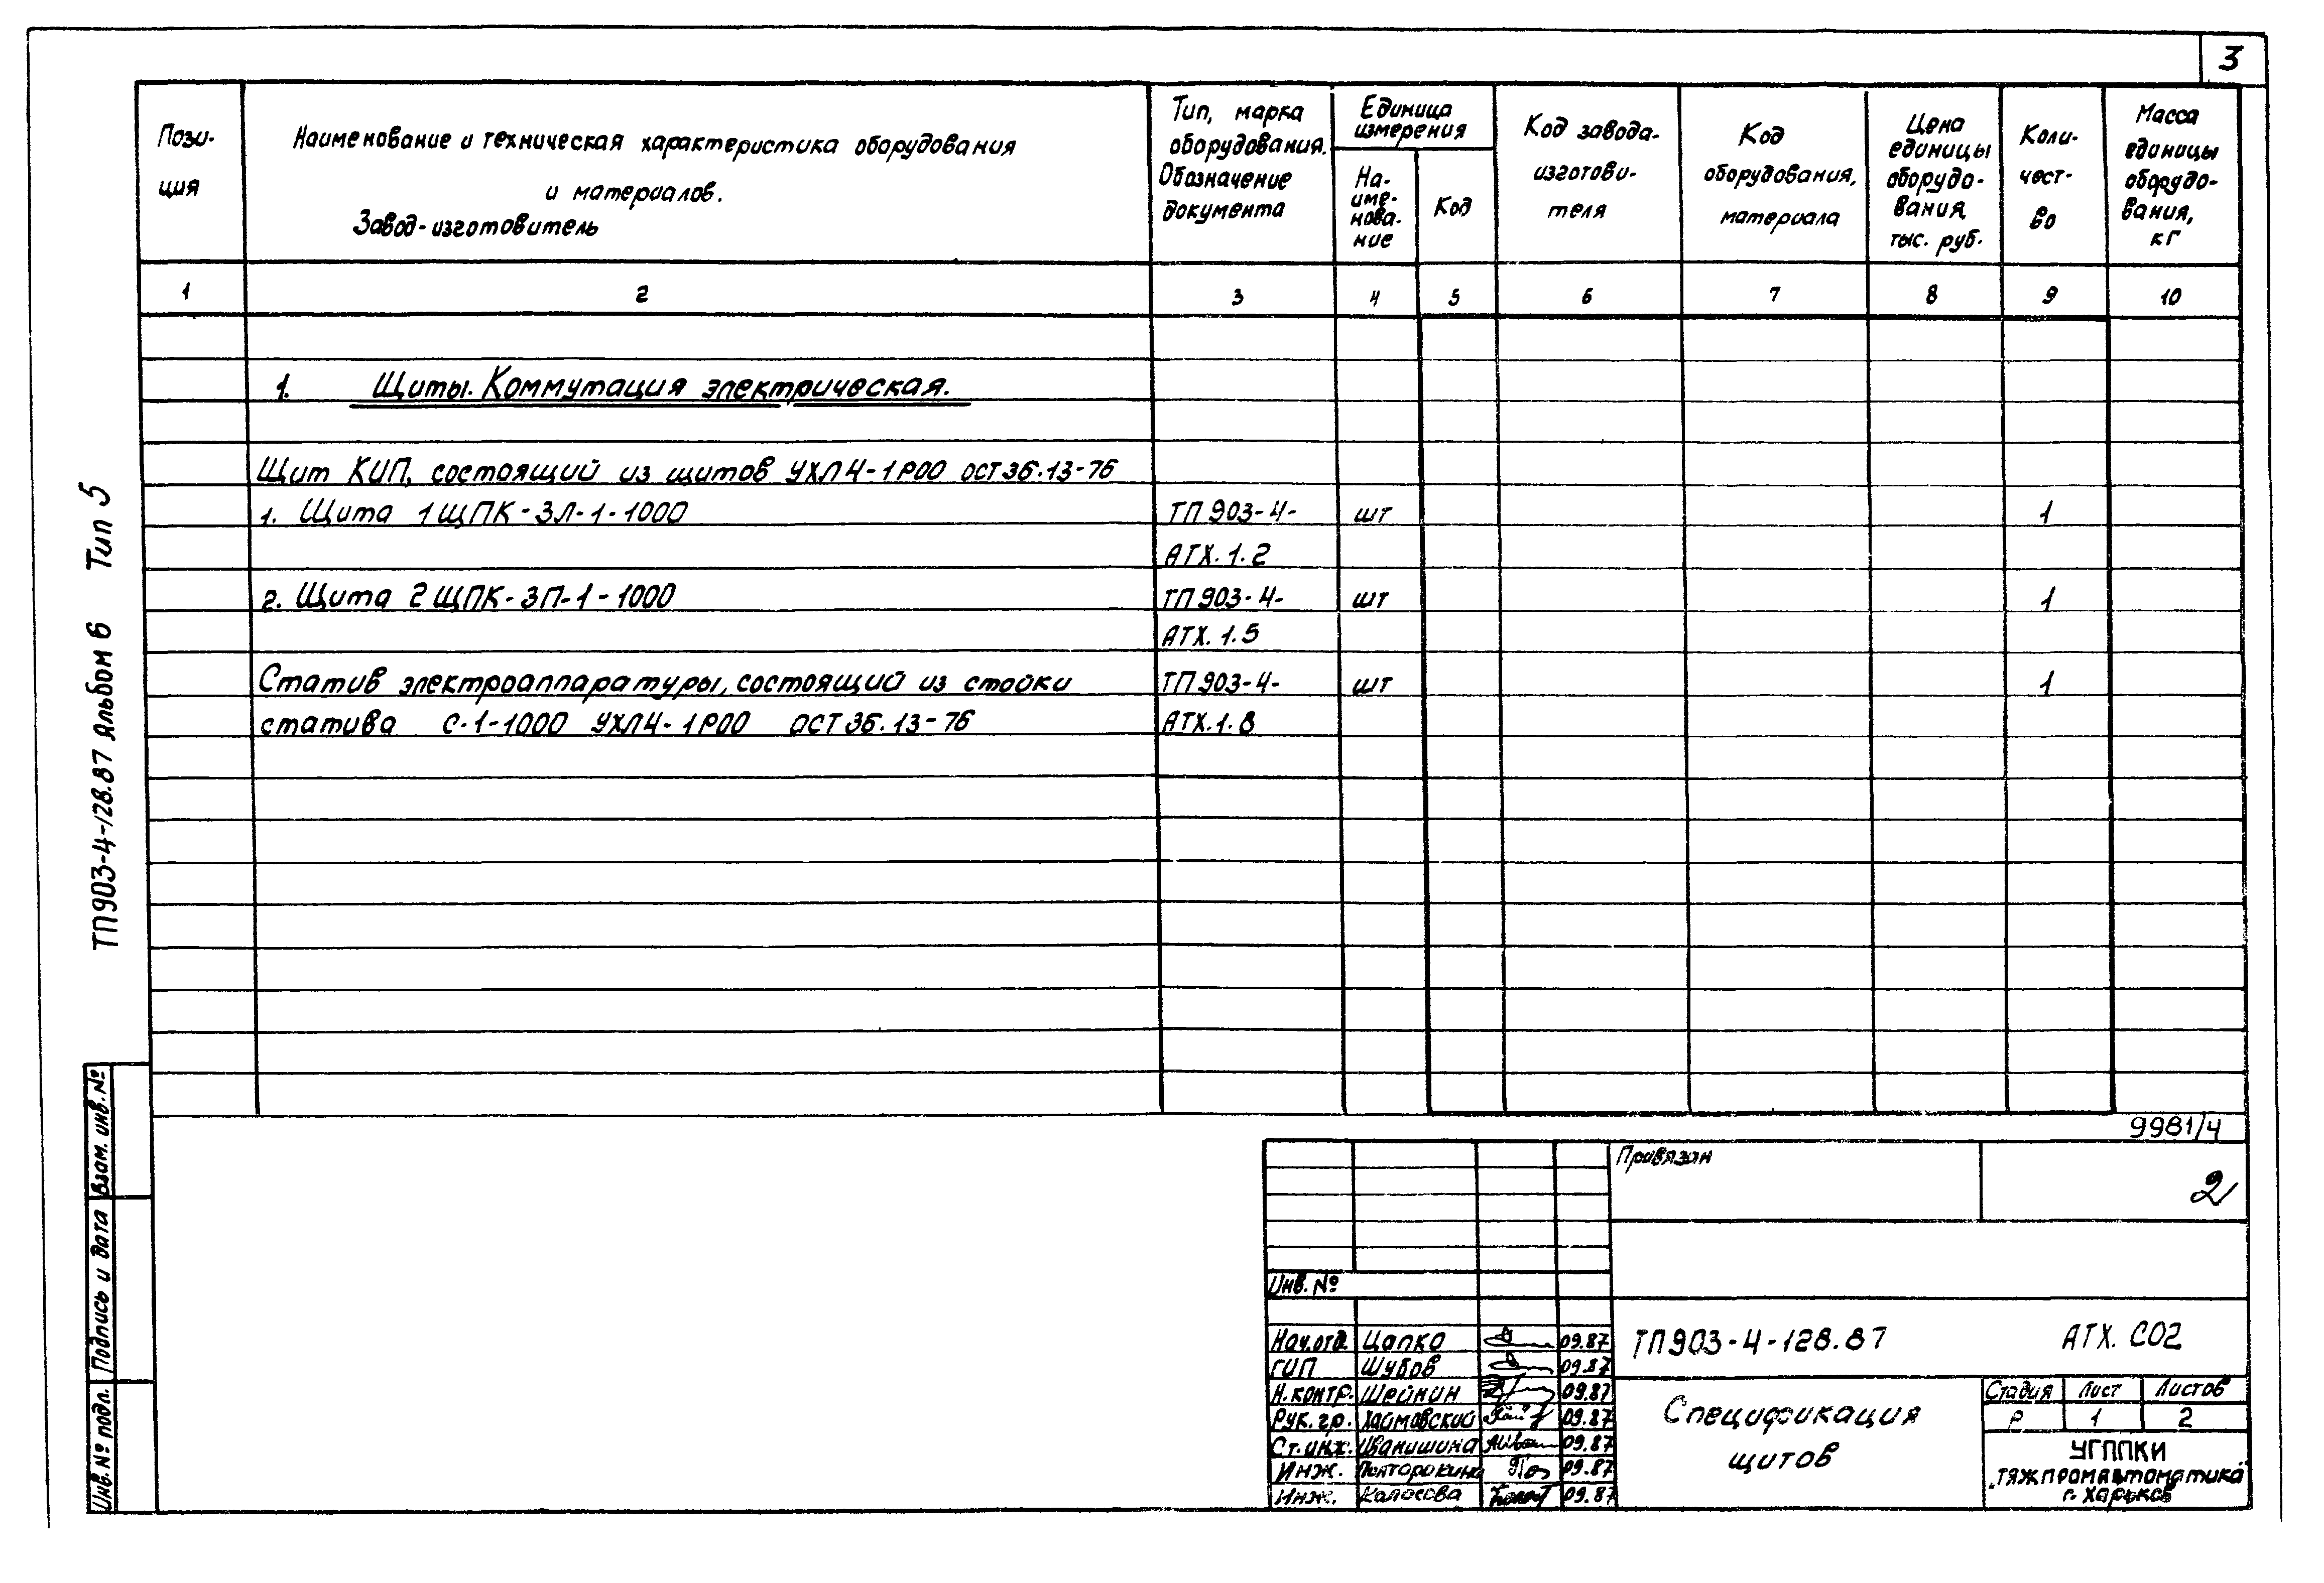 3
Пози-
ция
Наименование и техническая характеристика оборудования
и материалов.
Завод-изготовитель
Тип, марка
оборудования.
Обозначение
документа
Единица
измерения
На-
име-
нова-
ние
Код
Код завода-
изготови-
теля
Код
оборудования,
материала
Цена
единицы
оборудо-
вания,
тыс. руб.
Коли-
чест-
во
Масса
единицы
оборудо-
вания,
кг
1 2 3 4 5 6 7 8 9 10
1. Щиты. Коммутация электрическая.
Щит КИП, состоящий из щитов УХЛ4-1Р00 ОСТ36.13-76
1. Щита 1ЩПК-ЗЛ-1-1000 ТП903-4- шт 1
АТХ.1.2
2. Щита 2ЩПК-ЗП-1-1000 ТП903-4- шт 1
АТХ.1.5
Статив электроаппаратуры, состоящий из стойки ТП903-4- шт 1
статива С-1-1000 УХЛ4-1Р00 ОСТ36.13-76 АТХ.1.8
ТП903-4-128.87 Альбом 6 Тип 5
Взам. инв. №
Подпись и дата
Инв. № подл.
9981/4
Привязан
2
Инв. №
Нач.отд. Цапко 09.87
ГИП Шубов 09.87
Н.контр. Шейнин 09.87
Рук.гр. Хаймовский 09.87
Ст.инж. Иванишина 09.87
Инж. 09.87
Инж. Колосова 09.87
ТП903-4-128.87 АТХ. СО2
Спецификация
щитов
Стадия Лист Листов
Р 1 2
УГППКИ
"Тяжпромавтоматика"
г. Харьков